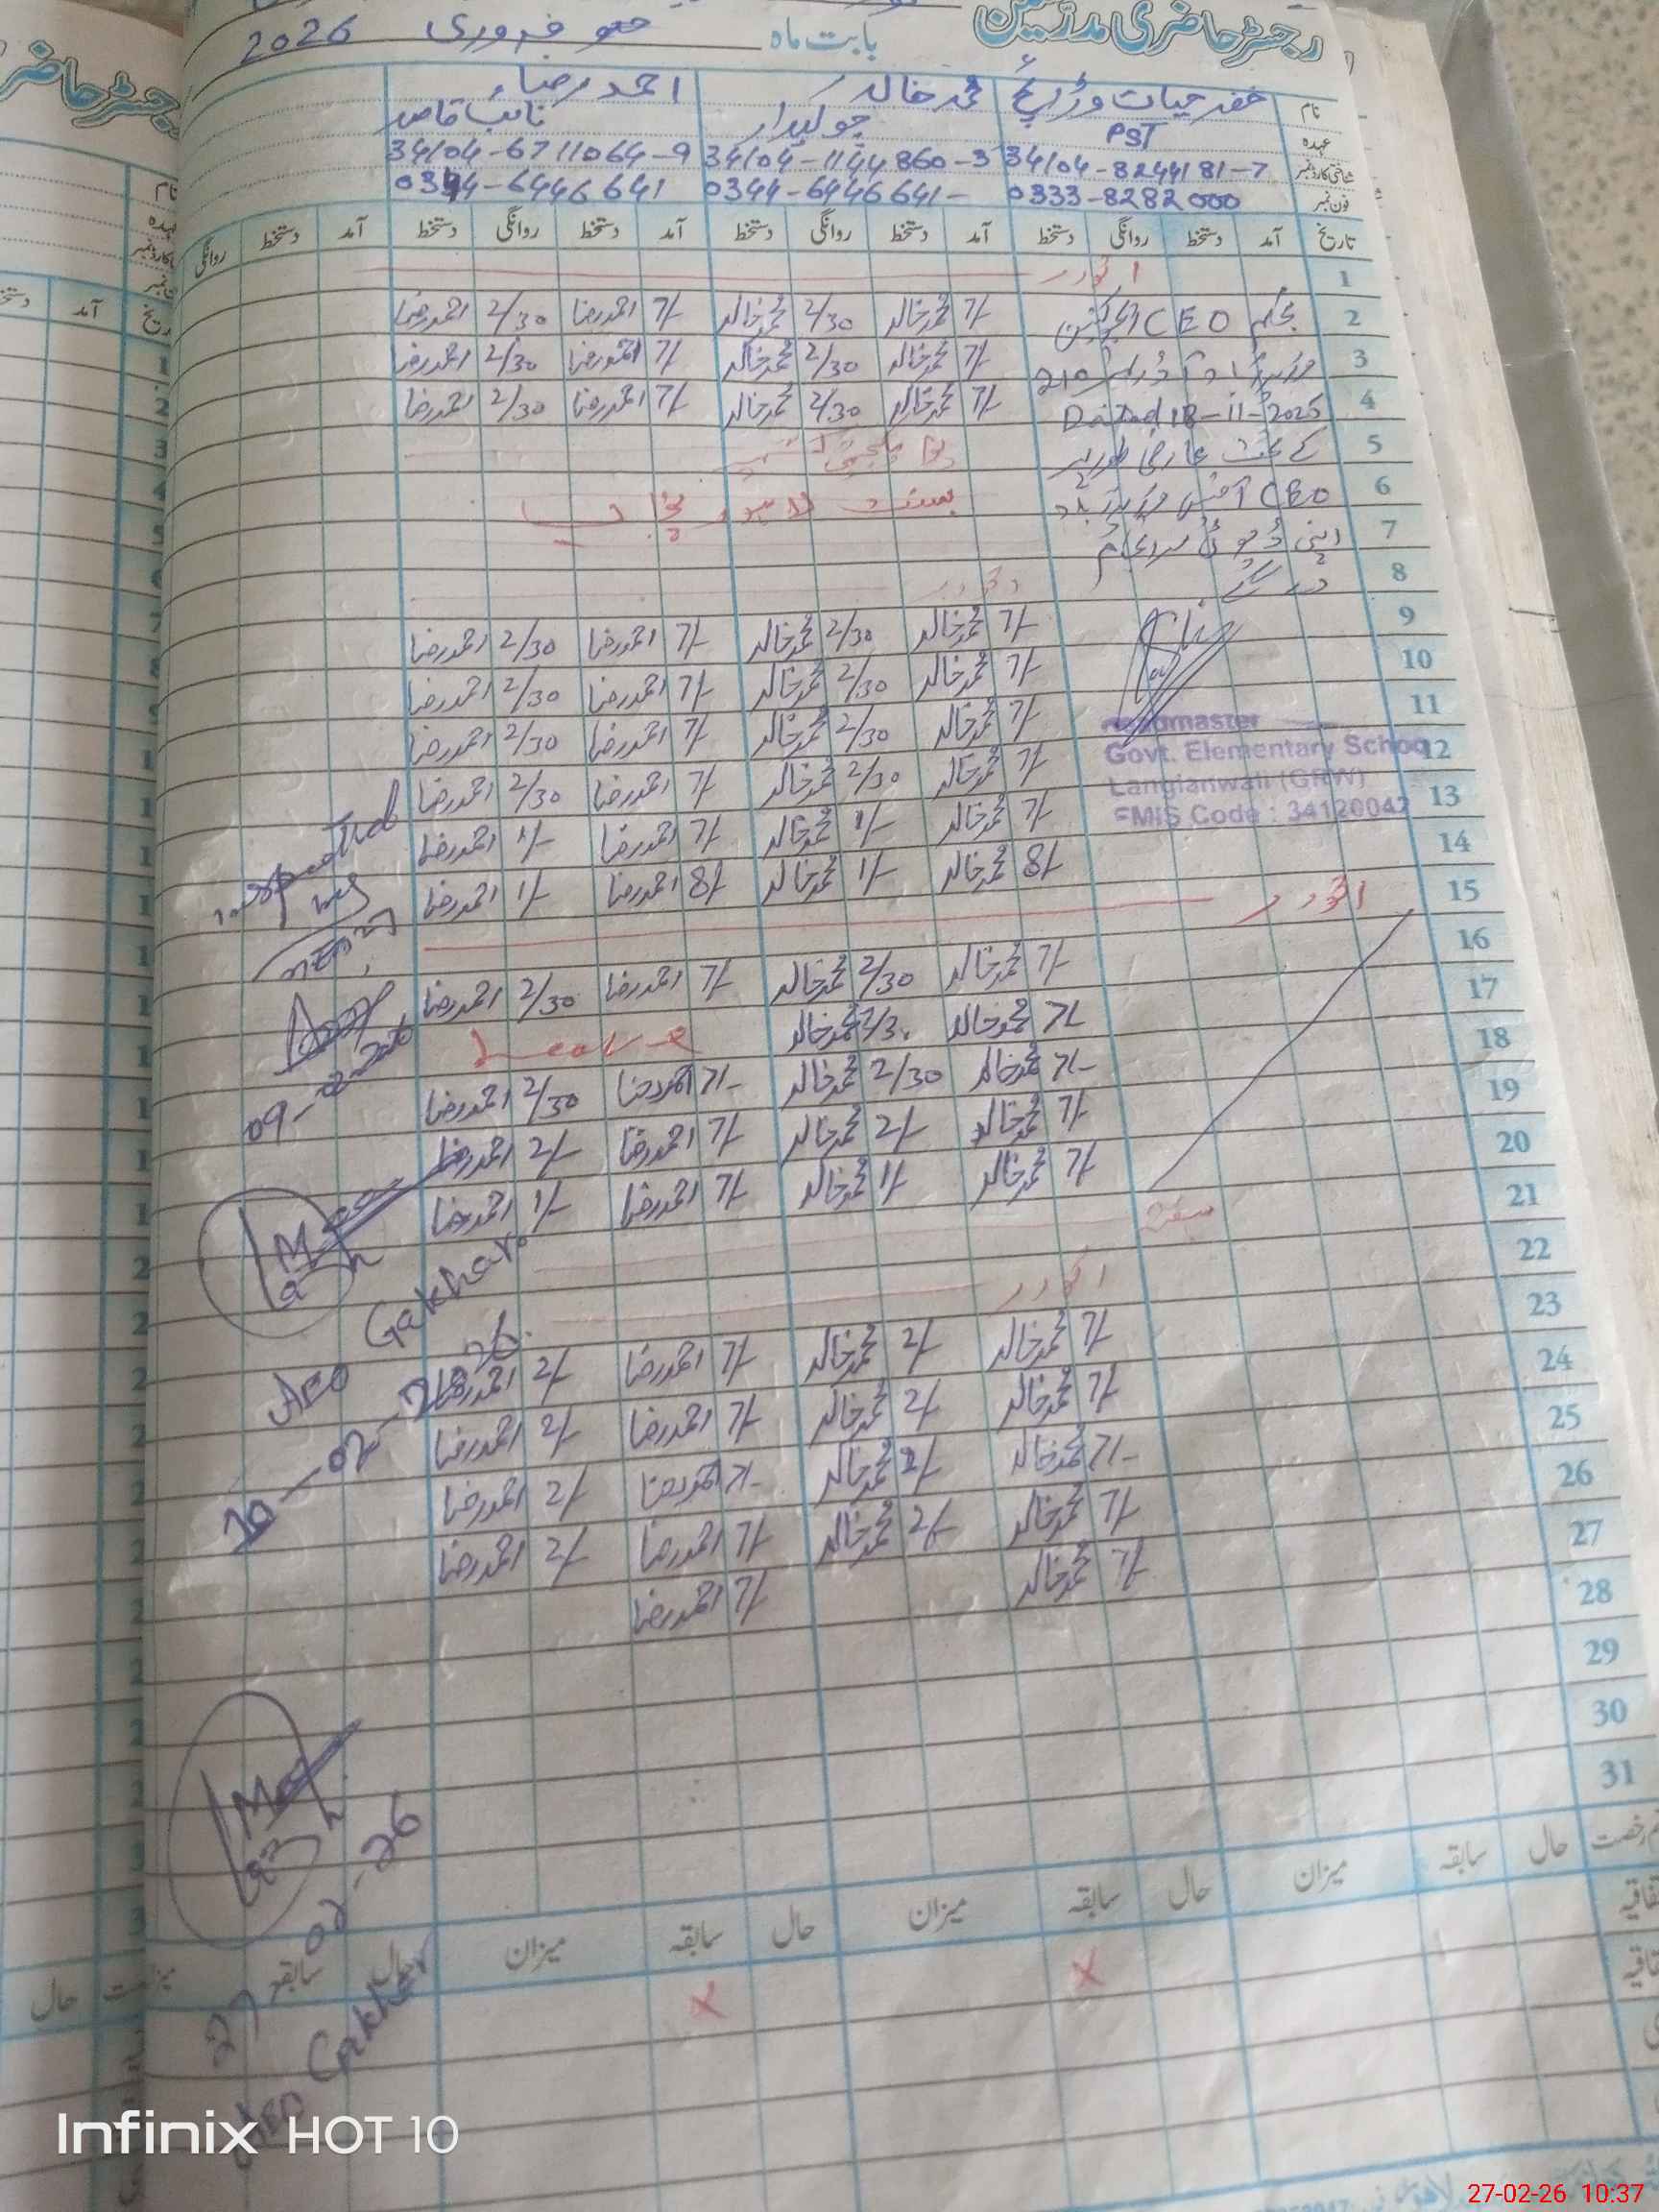 رجسٹر حاضری مدرسین بابت ماہ فروری 2026
نام خضر حیات وڑائچ محمد خالد احمد رضاء
عہدہ PST چوکیدار نائب قاصد
شناختی کارڈ نمبر 34104-8244181-7 34104-1144860-3 34104-6711064-9
فون نمبر 0333-8282000 0344-6446641- 0344-6446641
تاریخ آمد دستخط روانگی دستخط آمد دستخط روانگی دستخط آمد دستخط روانگی دستخط آمد دستخط روانگی
1 اتوار
2 بحکم CEO ایجوکیشن 7/- محمد خالد 2/30 محمد خالد 7/- احمد رضا 2/30 احمد رضا
3 7/- محمد خالد 2/30 محمد خالد 7/- احمد رضا 2/30 احمد رضا
4 Dated 18-11-2025 7/- محمد خالد 2/30 محمد خالد 7/- احمد رضا 2/30 احمد رضا
5 کے تحت عارضی طور پر یوم یکجہتی کشمیر
6 CEO آفس وزیرآباد بسنت لاہور پنجاب
7 اپنی ڈیوٹی سرانجام
8 دیں گے اتوار
9 7/- محمد خالد 2/30 محمد خالد 7/- احمد رضا 2/30 احمد رضا
10 7/- محمد خالد 2/30 محمد خالد 7/- احمد رضا 2/30 احمد رضا
11 7/- محمد خالد 2/30 محمد خالد 7/- احمد رضا 2/30 احمد رضا
Headmaster
Govt. Elementary School
Langianwali (GRW)
EMIS Code : 34120042
12 7/- محمد خالد 2/30 محمد خالد 7/- احمد رضا 2/30 احمد رضا
13 7/- محمد خالد 1/- محمد خالد 7/- احمد رضا 1/- احمد رضا
14 8/- محمد خالد 1/- محمد خالد 8/- احمد رضا 1/- احمد رضا
15 اتوار
16 7/- محمد خالد 2/30 محمد خالد 7/- احمد رضا 2/30 احمد رضا
17 7/- محمد خالد 2/30 محمد خالد Leave
18 7/- محمد خالد 2/30 محمد خالد 7/- احمد رضا 2/30 احمد رضا
19 7/- محمد خالد 2/- محمد خالد 7/- احمد رضا 2/- احمد رضا
20 7/- محمد خالد 1/- محمد خالد 7/- احمد رضا 1/- احمد رضا
21 ہفتہ
22 اتوار
23 7/- محمد خالد 2/- محمد خالد 7/- احمد رضا 2/- احمد رضا
24 7/- محمد خالد 2/- محمد خالد 7/- احمد رضا 2/- احمد رضا
25 7/- محمد خالد 2/- محمد خالد 7/- احمد رضا 2/- احمد رضا
26 7/- محمد خالد 2/- محمد خالد 7/- احمد رضا 2/- احمد رضا
27 7/- محمد خالد 7/- احمد رضا
28
29
30
31
09-2-2026
AEO Gakhar
10-02-2026
27-02-26
AEO Gakhar
حال سابقہ میزان حال سابقہ میزان حال سابقہ میزان حال سابقہ
x x
رجسٹر حاضری
Infinix HOT 10
27-02-26 10:37